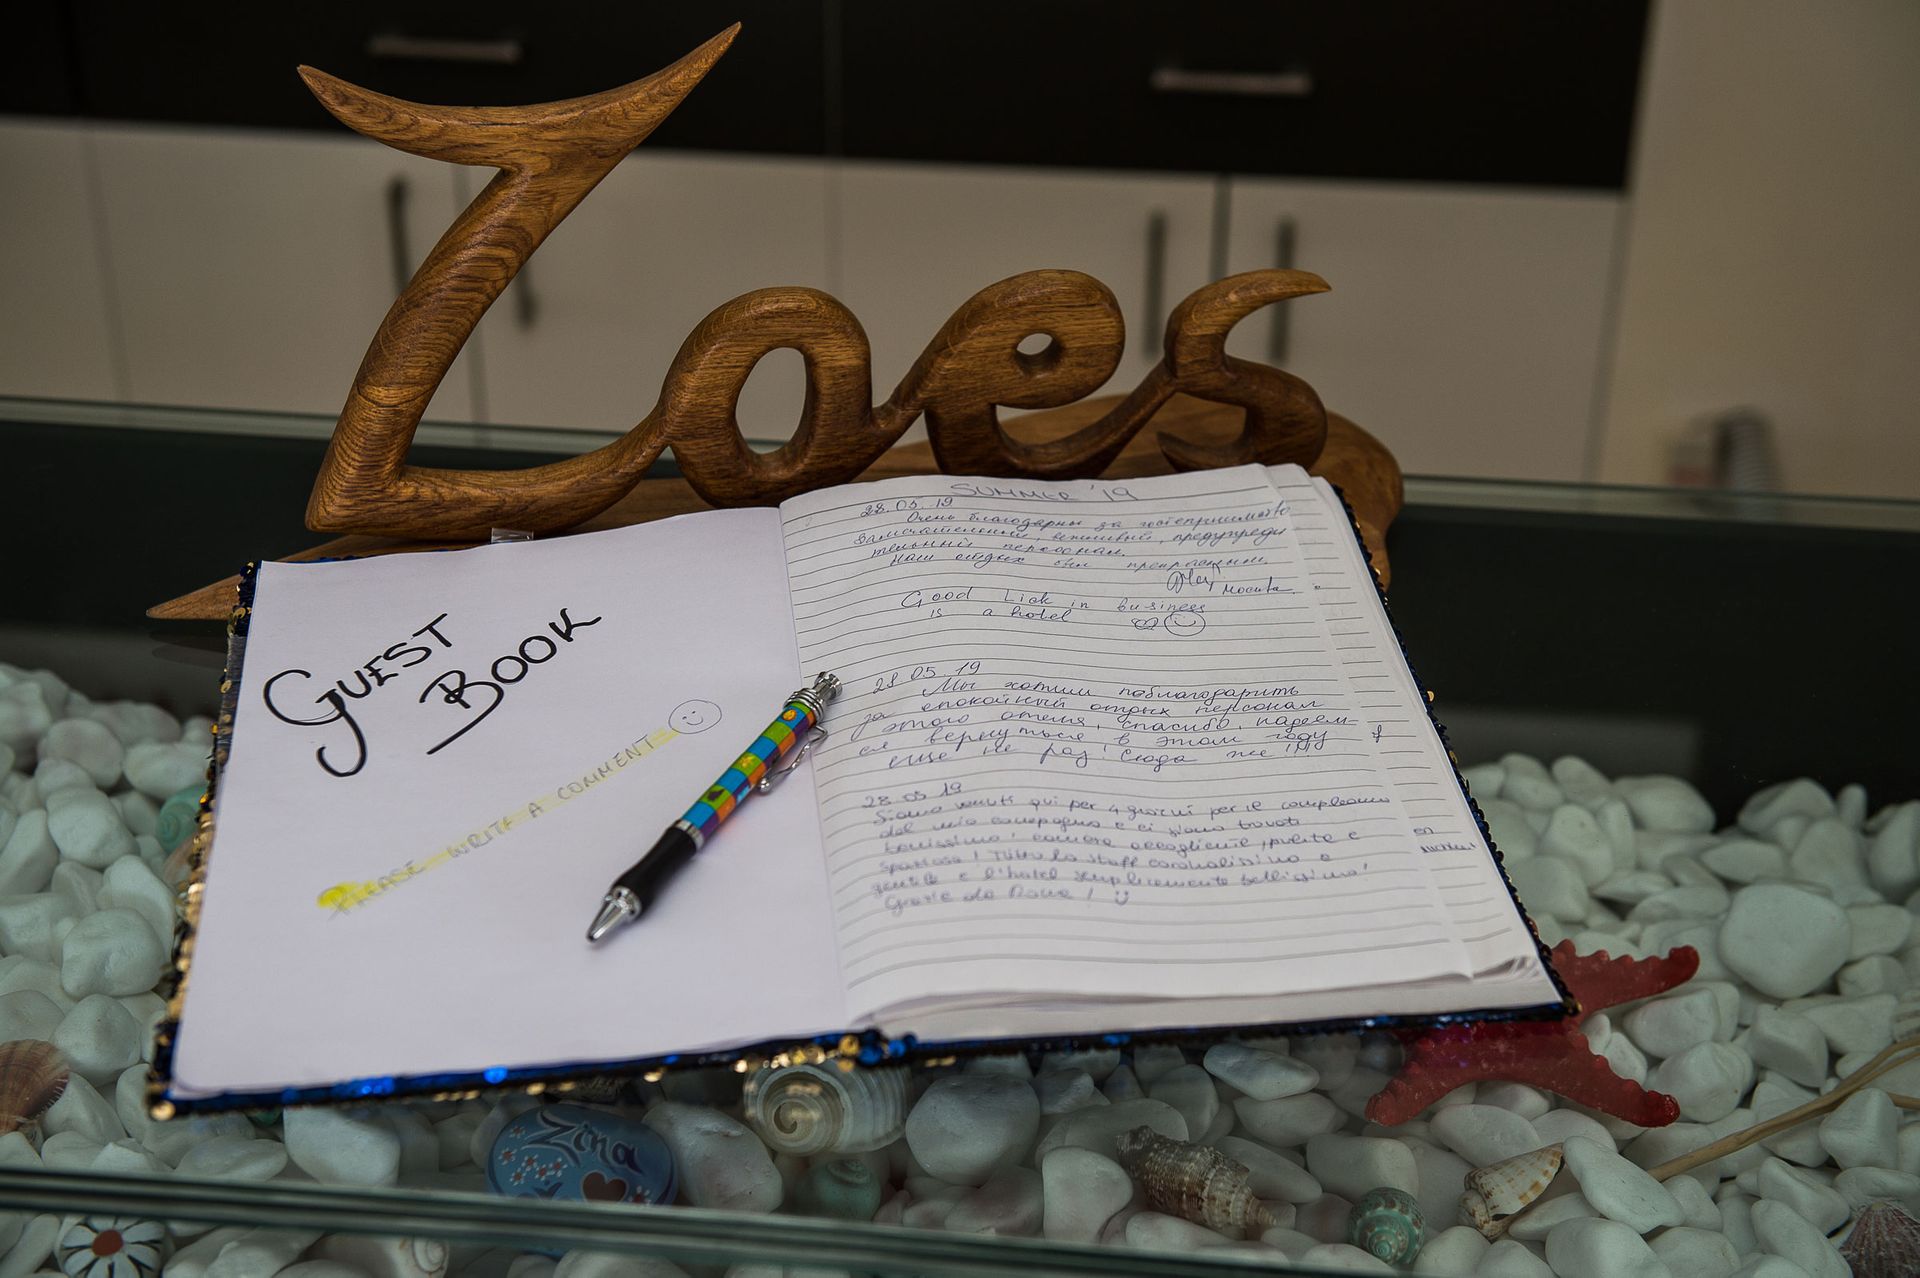 Zoes
GUEST
BOOK
PLEASE WRITE A COMMENT
SUMMER '19
28.05.19
Очень благодарны за гостеприимство
Замечательный, вежливый, предупреди
тельный персонал.
Наш отдых был прекрасным.
Москва.
Good Lick in business
is a hotel
28 05 19
Мы хотим поблагодарить
за спокойный отдых персонал
этого отеля, спасибо, надеем-
ся вернуться в этом году
еще не раз! Сюда же!!!
28.05 19
Siamo venuti qui per 4 giorni per il compleanno
del mio compagno e ci siamo trovati
benissimo! camera accogliente, pulita e
spaziosa! Tutto lo staff cordialissimo e
gentile e l'hotel semplicemente bellissimo!
Grazie da Roma!
Zina